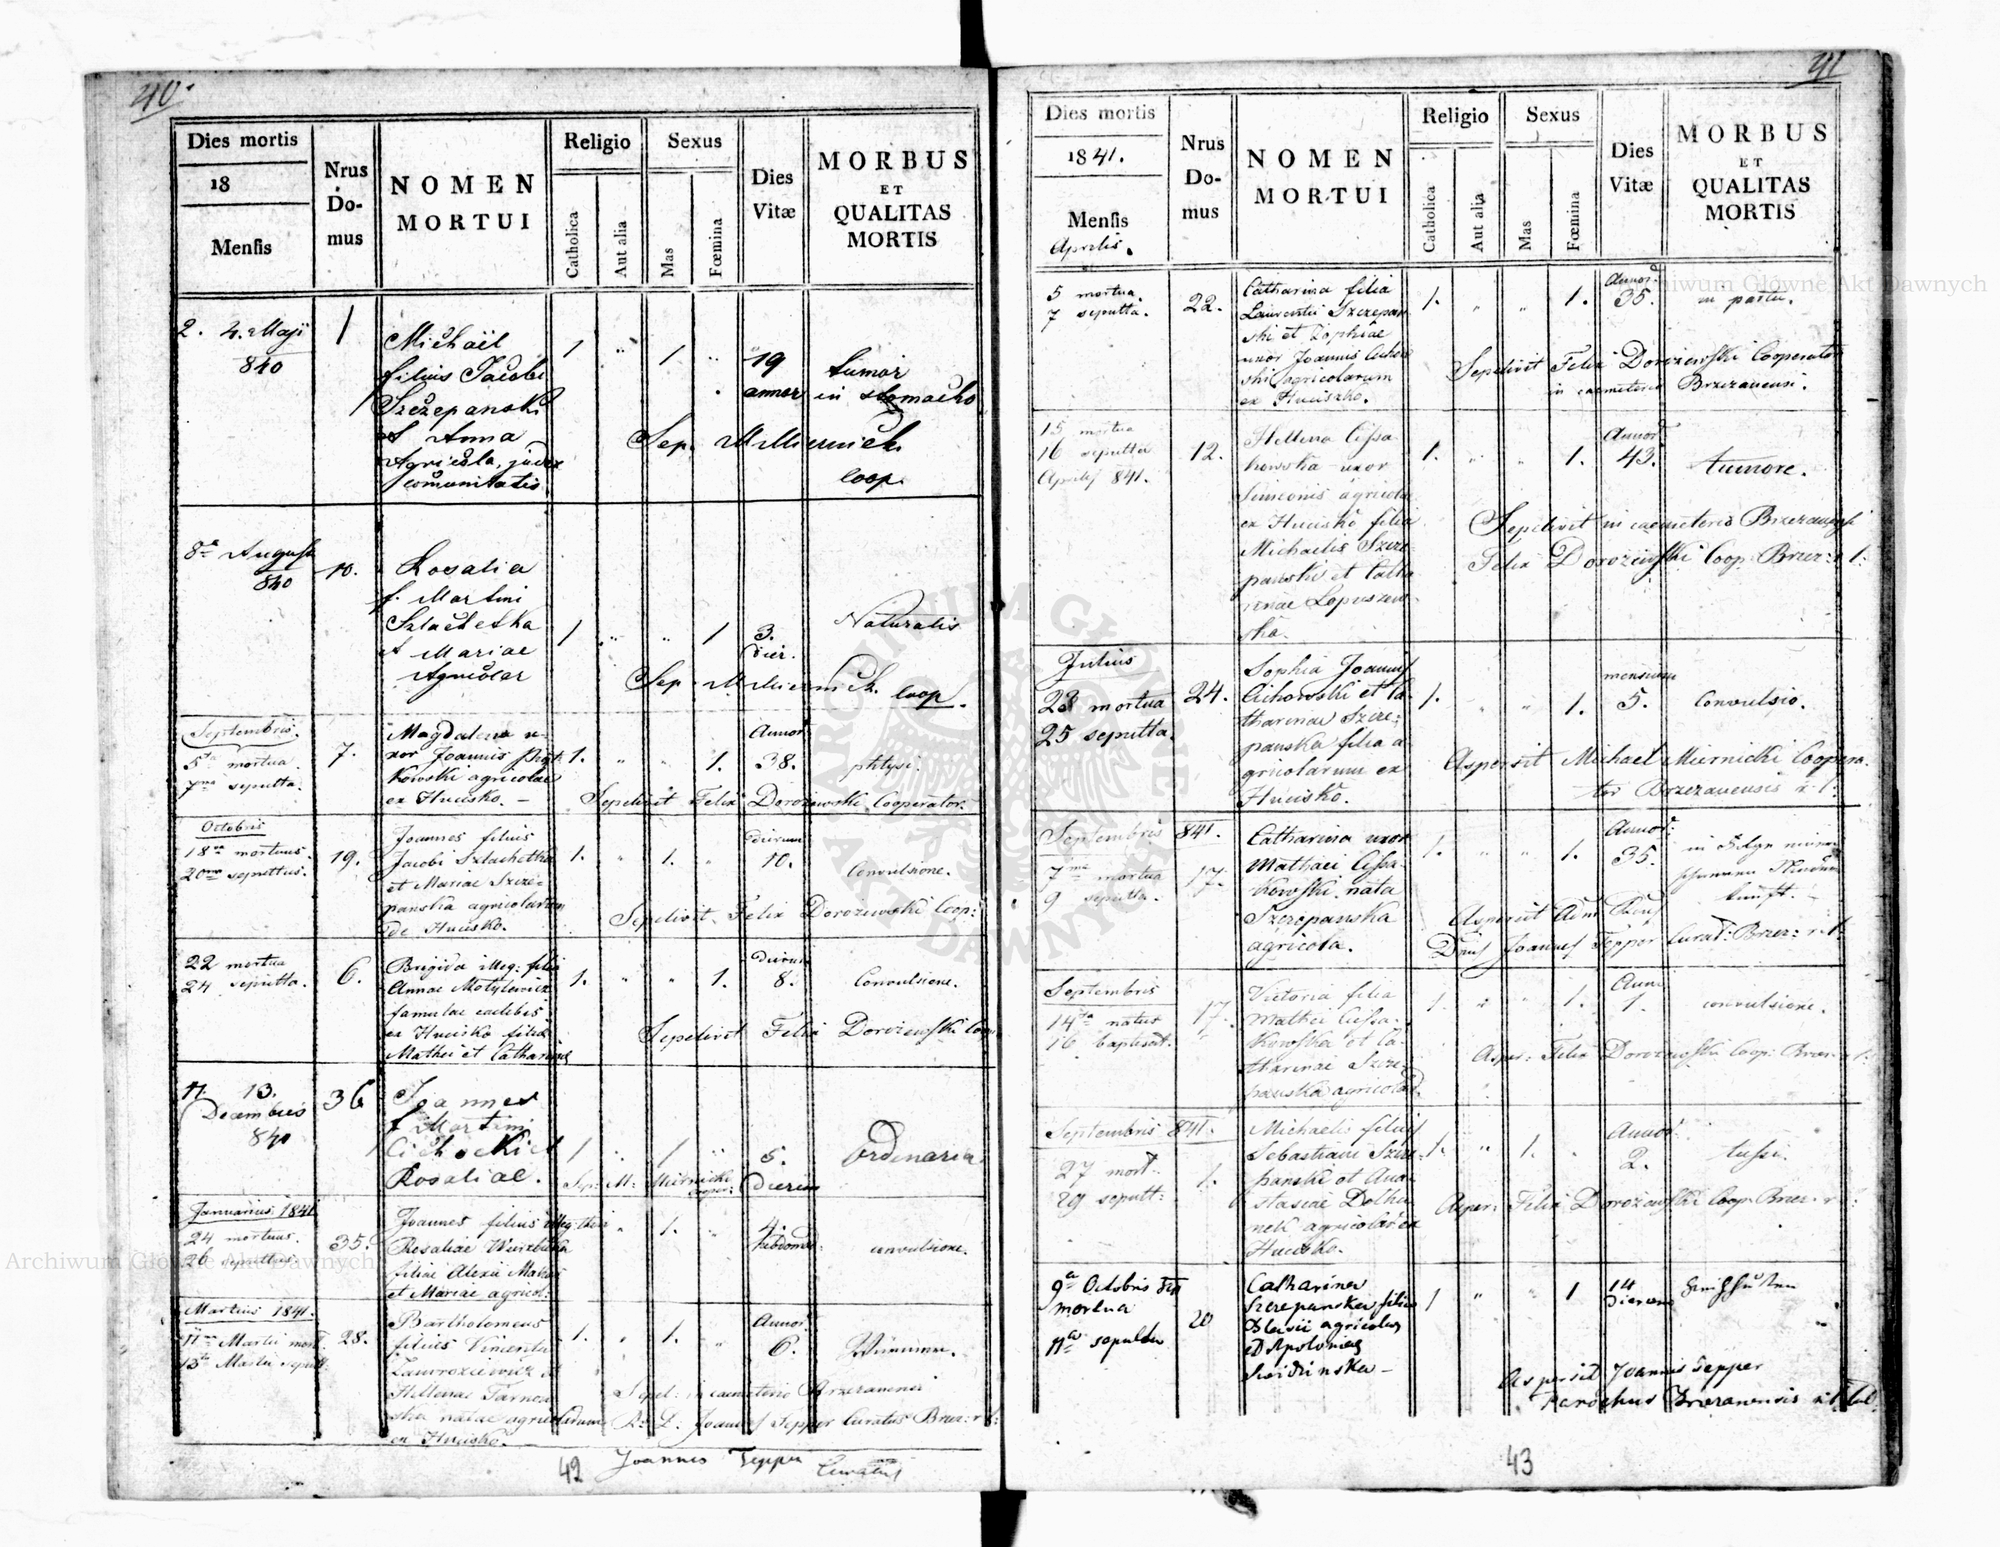 40.
Dies mortis
18
Mensis
Nrus
Do-
mus
NOMEN
MORTUI
Religio
Catholica
Aut alia
Sexus
Mas
Fœmina
Dies
Vitæ
MORBUS
ET
QUALITAS
MORTIS
2. 4. Maji
840
1
Michaël
filius Jacobi
Szczepanski
et Anna
Agricola, judex
comunitatis
1 " 1 "
19
annor
tumor
in stomacho
Sep. M Miernick
Coop.
8a Augusti
840
10.
Rosalia
f. Martini
Szlachetka
et Mariae
Agricolar
1 " " 1
3.
dier.
Naturalis
Sep. M Miernick. Coop.
Septembris.
5ta mortua.
7ma sepulta.
7.
Magdalena u-
xor Joannis
kowski agricolae
ex Hucisko. –
1. " " 1.
Annor
38.
phtysi.
Sepelivit Felix Dorozewski Cooperator.
Octobris
18va mortuus.
20ma sepultus.
19.
Joannes filius
Jacobi Szlachetka
et Mariae Szcze-
panska agricolarum
de Hucisko.
1. " 1. "
dierum
10.
Convulsione.
Sepelivit Felix Dorozewski Coop:
22 mortua
24 sepulta.
6.
Brigida illeg: filia
Annae Motylewicz
famulae caelibis
ex Hucisko filia
Mathei et Catharinae
1. " " 1.
dierum
8.
Convulsione.
Sepelivit Felix Dorozewski Coop:
11. 13.
Decembris
840
36
Joannes
f Martini
Cichocki et
Rosaliae.
1 " 1 "
5.
dierum
Ordinaria
Sep: M: Miernicki
cooper:
Januarius 1841
24 mortuus.
26 sepultus.
35.
Joannes filius illeg: thori
Rosaliae
filiae Alexii
et Mariae agricol:
" 1. "
4.
hebdomad:
convulsione.
Martius 1841.
11ma Martii mort.
13ta Martii sepult
28.
Bartholomeus
filius Vincentii
Zawrzciewicz et
Hellenae Tarnow-
ska natae agricolarum
ex Hucisko.
1. " 1. "
Annor
6.
Sepel: in caemeterio Brzezanensi
R: D: Joannes Tepper Curatus Brzez: r l:
Joannes Tepper Curatus
42
41
Dies mortis
1841.
Mensis
Aprilis.
Nrus
Do-
mus
NOMEN
MORTUI
Religio
Catholica
Aut alia
Sexus
Mas
Fœmina
Dies
Vitæ
MORBUS
ET
QUALITAS
MORTIS
5 mortua.
7 sepulta.
22.
Catharina filia
Laurentii Szczepan-
ski et Zophiae
uxor Joannis Cichow-
ski agricolarum
ex Huciszko.
1. " " 1.
Annor
35.
in partu.
Sepelivit Felix Dorozewski Cooperator
in caemeterio Brzezanensi.
15 mortua
16 sepulta
Aprilis 841.
12.
Hellena Cissa-
kowska uxor
Simeonis agricola
ex Hucisko filia
Michaelis Szcze-
panski et Catha-
rinae Lopuszew-
ska.
1. " " 1.
Annor
43.
tumore.
Sepelivit in caemeterio Brzezanensi
Felix Dorozewski Coop: Brzez: r l:
Julius
23 mortua
25 sepulta.
24.
Sophia Joannis
Cichowski et Ca-
tharinae Szcze-
panska filia a-
gricolarum ex
Hucisko.
1. " " 1.
mensium
5.
Convulsio.
Aspersit Michael Miernicki Coopera-
tor Brzezanensis r l:
Septembris 841.
7ma mortua
9 sepulta.
17.
Catharina uxor
Mathaei Cissa-
kowski nata
Szczepanska
agricola.
1. " " 1.
Annor:
35.
in Folge
kunft. –
Aspersit
Joannes Tepper Curat: Brzez: r. l:
Septembris
14ta natus
16 baptisat.
17.
Victoria filia
Mathei Cissa-
kowska et Ca-
tharinae Szcze-
panska agricolar.
1. " " 1.
Anni
1.
convulsione.
Asper: Felix Dorozewski Coop: Brzez: r l:
Septembris 841.
27 mort.
29 sepult:
1.
Michaelis filius
Sebastiani Szcze-
panski et Ana-
stasiae
agricolar ex
Hucisko.
1. " 1. "
Annor
2.
tussi.
Asper: Felix Dorozewski Coop. Brzez: r l:
9a Octobris
mortua
11a sepulta
20
Catharina
Szczepanska filia
Blasii agricolae
et Apoloniae
–
1 " " 1
14
Dierum
Aspersit Joannes Tepper
Parochus Brzezanensis
43
Archiwum Główne Akt Dawnych
Archiwum Główne Akt Dawnych
ARCHIWUM GŁÓWNE AKT DAWNYCH